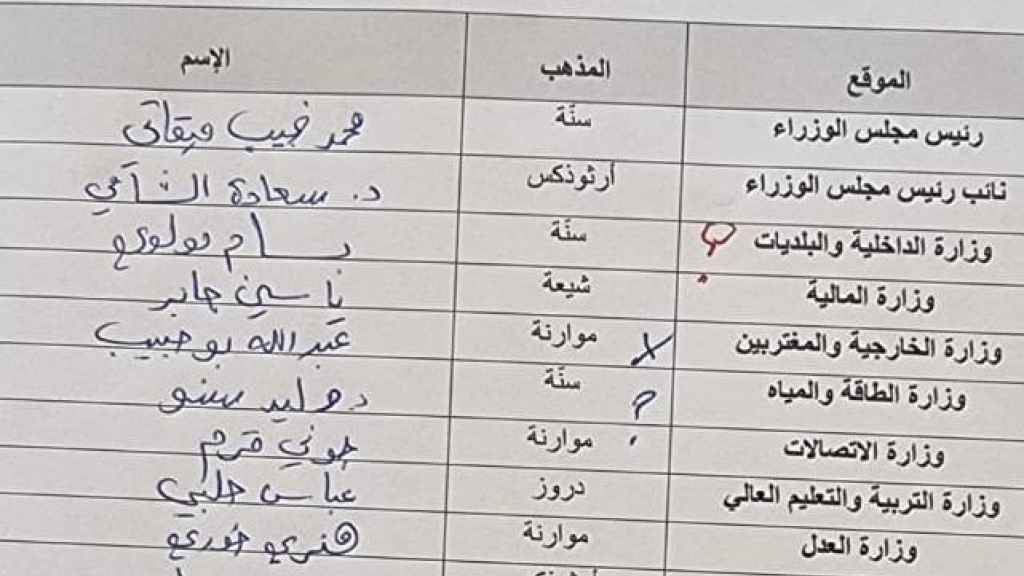 الموقع المذهب الإسم
رئيس مجلس الوزراء سنّة محمد نجيب ميقاتي
نائب رئيس مجلس الوزراء أرثوذكس د. سعادة الشامي
وزارة الداخلية والبلديات ؟ سنّة بسام مولوي
وزارة المالية شيعة ياسين جابر
وزارة الخارجية والمغتربين X موارنة عبدالله بوحبيب
وزارة الطاقة والمياه ؟ سنّة د. وليد سنو
وزارة الاتصالات موارنة جوني قرم
وزارة التربية والتعليم العالي دروز عباس حلبي
وزارة العدل موارنة هنري خوري